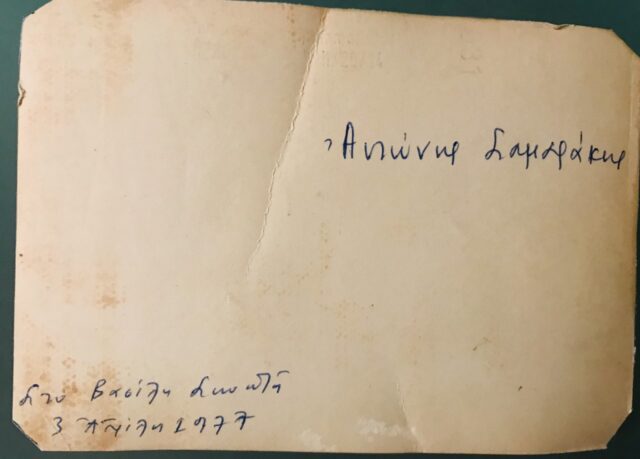 Ἀντώνης Σαμαράκης
Στο Βασίλη
3 Απρίλη 1977